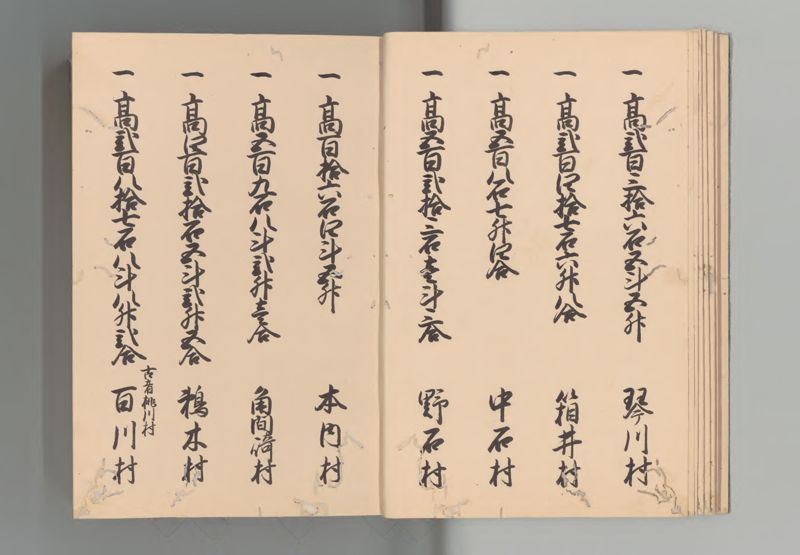 一 高弐百三拾六石五斗五升 琴川村
一 高弐百四拾七石六升八合 箱井村
一 高五百八石七升四合 中石村
一 高五百弐拾二石壱斗二合 野石村
一 高百拾六石四斗五升 本内村
一 高五百九石八斗弐升壱合 角間崎村
一 高四百弐拾石五斗弐升五合 鵜木村
一 高弐百八拾七石八斗八升弐合 百川村
古者桃川村